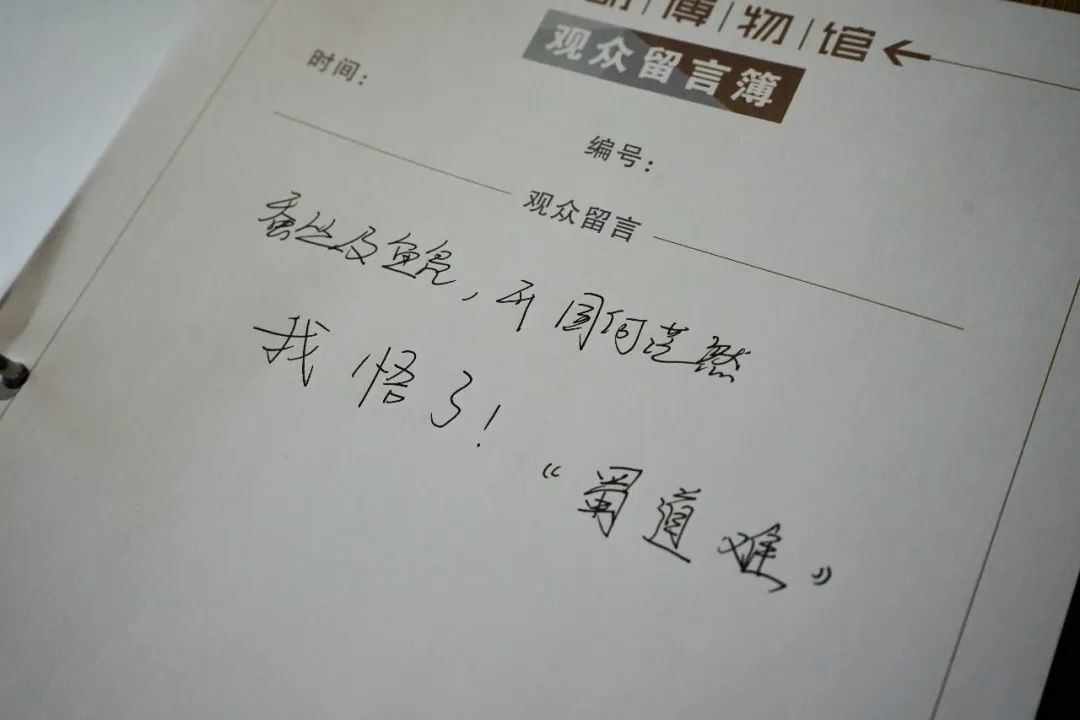 博物馆
观众留言簿
时间：
编号：
观众留言
蚕丛及鱼凫，开国何茫然
我悟了！
“蜀道难”